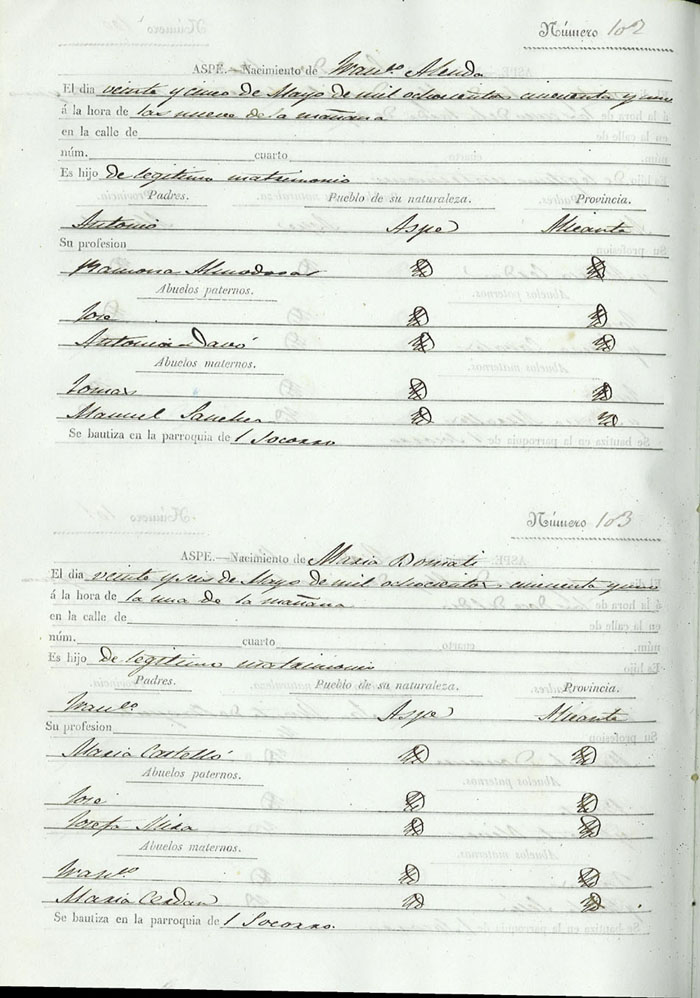 Número 102
ASPE.—Nacimiento de Franco Alenda
El dia veinte y cinco de Mayo de mil ochocientos cincuenta y uno
á la hora de las nueve de la mañana
en la calle de
núm. cuarto
Es hijo de legitimo matrimonio
Padres. Pueblo de su naturaleza. Provincia.
Antonio Aspe Alicante
Su profesion
Ramona Almodovar
Abuelos paternos.
Jose
Antonia Davó
Abuelos maternos.
Tomas
Manuel Sanchez
Se bautiza en la parroquia de l Socorro
Número 103
ASPE.—Nacimiento de Maria
El dia veinte y seis de Mayo de mil ochocientos cincuenta y uno
á la hora de la una de la mañana
en la calle de
núm. cuarto
Es hijo de legitimo matrimonio
Padres. Pueblo de su naturaleza. Provincia.
Franco Aspe Alicante
Su profesion
Maria Castelló
Abuelos paternos.
José
Josefa Mira
Abuelos maternos.
Franco
Maria Cerdan
Se bautiza en la parroquia de l Socorro